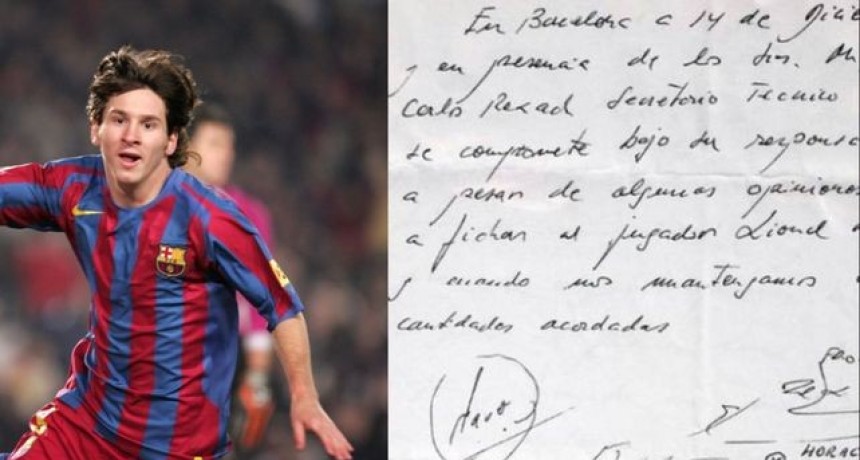 En Barcelona a 14 de Dici
y en presencia de los Srs. M
Carlos Rexach Secretario Técnico
se compromete bajo su responsa
a pesar de algunas opiniones
a fichar al jugador Lionel
y cuando nos mantengamos
cantidades acordadas
HORAC